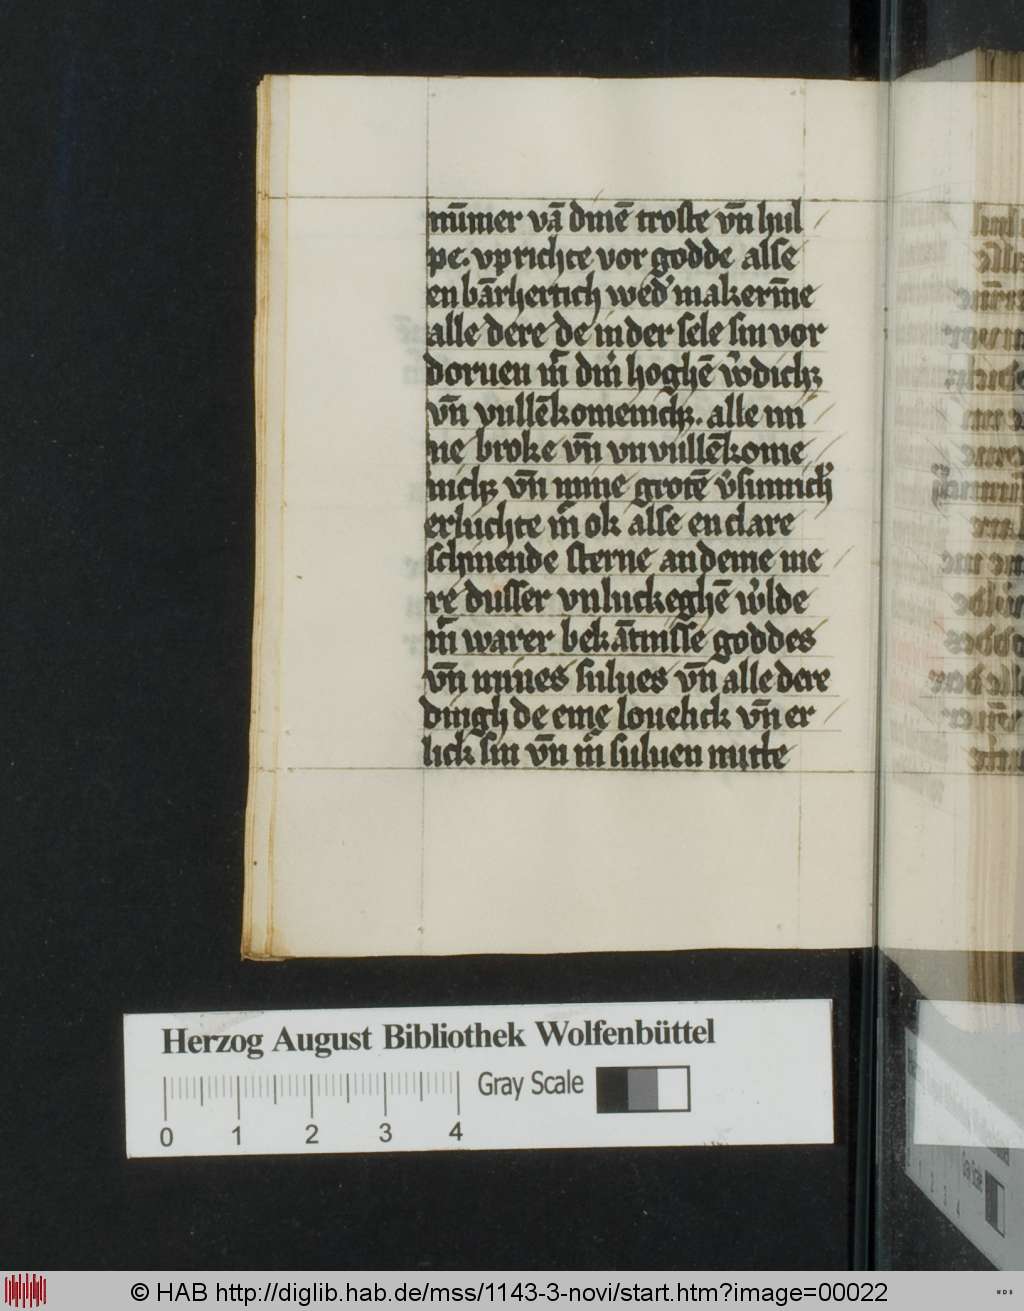 nūmer vā dinē troste vn̄ hul
pe. vprichte vor godde alse
en bārhertich wed' makerīne
alle dere de in der sele sin vor
doruen in̄ din̄ hoghē
vn̄ vullēkomenich. alle mi
ne broke vn̄ vnvullēkome
nich vn̄ mine grotē
erluchte in̄ ok alse en clare
schinende sterne an deme me
re dusser vnluckeghē w'lde
in̄ warer bekātnisse goddes
vn̄ mines sulues vn̄ alle dere
dingh de eme louelick vn̄ er
lick sin vn̄ in̄ suluen nutte
Herzog August Bibliothek Wolfenbüttel
Gray Scale
0 1 2 3 4
© HAB http://diglib.hab.de/mss/1143-3-novi/start.htm?image=00022